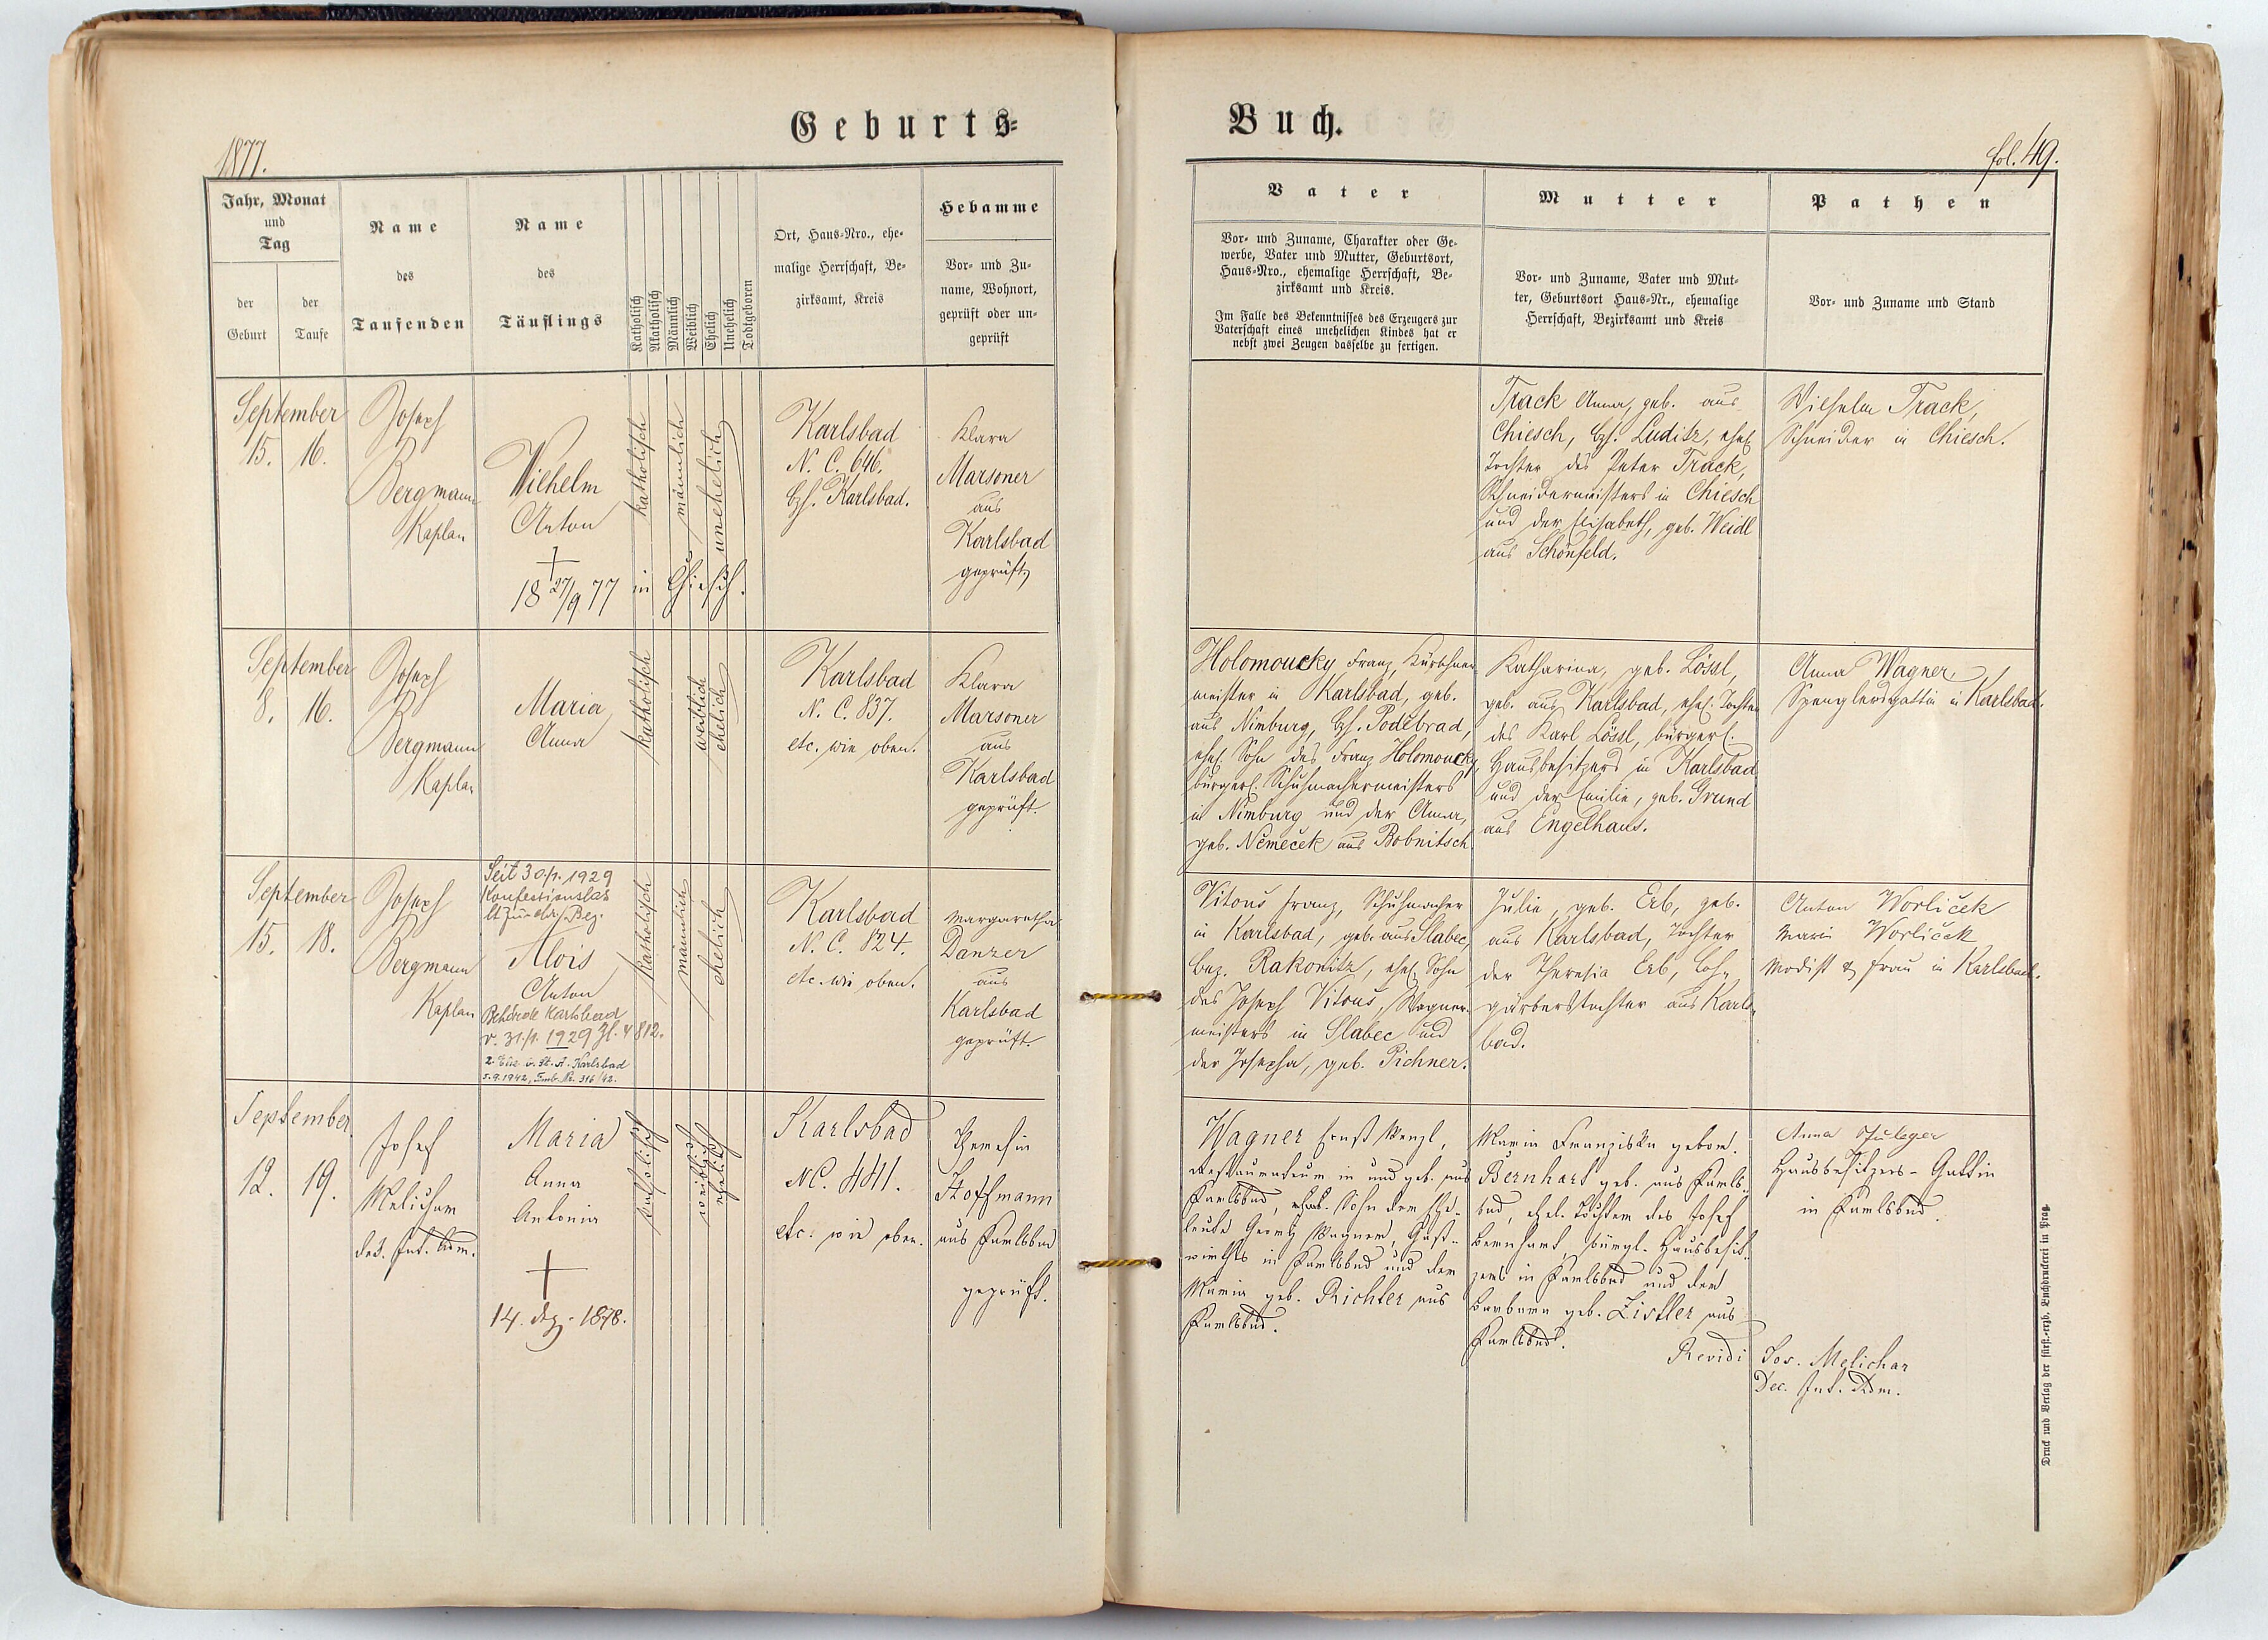 Geburts=
Buch.
1877.
fol. 49.
Jahr, Monat
und
Tag
der
Geburt
der
Taufe
Name
des
Taufenden
Name
des
Täuflings
Katholisch
Akatholisch
Männlich
Weiblich
Ehelich
Unehelich
Todtgeboren
Ort, Haus-Nro., ehe-
malige Herrschaft, Be-
zirksamt, Kreis
Hebamme
Vor- und Zu-
name, Wohnort,
geprüft oder un-
geprüft
Vater
Vor- und Zuname, Charakter oder Ge-
werbe, Vater und Mutter, Geburtsort,
Haus-Nro., ehemalige Herrschaft, Be-
zirksamt und Kreis.
Im Falle des Bekenntnisses des Erzeugers zur
Vaterschaft eines unehelichen Kindes hat er
nebst zwei Zeugen dasselbe zu fertigen.
Mutter
Vor- und Zuname, Vater und Mut-
ter, Geburtsort Haus-Nr., ehemalige
Herrschaft, Bezirksamt und Kreis
Pathen
Vor- und Zuname und Stand
September
15. 16.
Joseph
Bergmann
Kaplan
Wilhelm
Anton
†
18 27/9 77 in Chiesch.
katholisch
männlich
unehelich
Karlsbad
N. C. 646.
Bz. Karlsbad.
Klara
Marsoner
aus
Karlsbad
geprüft
Track Anna, geb. aus
Chiesch, Bz. Luditz, ehel.
Tochter des Peter Track,
Schneidermeisters in Chiesch
und der Elisabeth, geb. Weidl
aus Schönfeld.
Wilhelm Track,
Schneider in Chiesch.
September
8. 16.
Joseph
Bergmann
Kaplan
Maria
Anna
katholisch
weiblich
ehelich
Karlsbad
N. C. 837.
etc. wie oben.
Klara
Marsoner
aus
Karlsbad
geprüft.
Holomoucky Franz, Kürschner-
meister in Karlsbad, geb.
aus Nimburg, Bz. Poděbrad,
ehel. Sohn des Franz Holomoucky,
bürgerl. Schuhmachermeisters
in Nimburg und der Anna,
geb. Němeček aus Bobnitsch.
Katharina, geb. Lössl,
geb. aus Karlsbad, ehel. Tochter
des Karl Lössl, bürgerl.
Hausbesitzers in Karlsbad
und der Emilie, geb. Grund
aus Engelhaus.
Anna Wagner,
Spenglersgattin in Karlsbad.
September
15. 18.
Joseph
Bergmann
Kaplan
Seit 30/1. 1929
Konfessionslos
lt Zuschr. Bez.
Alois
Anton
Behörde Karlsbad
v. 31./1. 1929 Zl. 4812.
2. Ehe b. St. A. Karlsbad
5.9.1942, Fmb. Nr. 316/42.
katholisch
männlich
ehelich
Karlsbad
N. C. 824.
etc. wie oben.
Margaretha
Danzer
aus
Karlsbad
geprüft.
Vitous Franz, Schuhmacher
in Karlsbad, geb. aus Slabec,
Bez. Rakonitz, ehel. Sohn
des Joseph Vitous, Wagner-
meisters in Slabec und
der Josepha, geb. Pichner.
Julie, geb. Erb, geb.
aus Karlsbad, Tochter
der Theresia Erb, Loh-
gärberstochter aus Karls-
bad.
Anton Worliček
Marie Worliček
Modist & Frau in Karlsbad.
September
12. 19.
Josef
Melichar
Dec. Int. Adm.
Maria
Anna
Antonia
†
14. Dez. 1878.
katholisch
weiblich
ehelich
Karlsbad
NC. 441.
etc. wie oben.
Theresia
Hoffmann
aus Karlsbad
geprüft.
Wagner Ernst Wenzl,
Restaurateur in und geb. aus
Karlsbad, ehel. Sohn der Ehe-
leute Georg Wagner, Gast-
wirths in Karlsbad und der
Maria geb. Richter aus
Karlsbad.
Maria Franziska gebor.
Bernhart geb. aus Karls-
bad, ehel. Tochter des Josef
Bernhart, bürgl. Hausbesit-
zers in Karlsbad und der
Barbara geb. Zistler aus
Karlsbad.
Anna
Hausbesitzers-Gattin
in Karlsbad.
Revidi Jos. Melichar
Dec. Int. Adm.
Druck und Verlag der fürst.-erzb. Buchdruckerei in Prag.